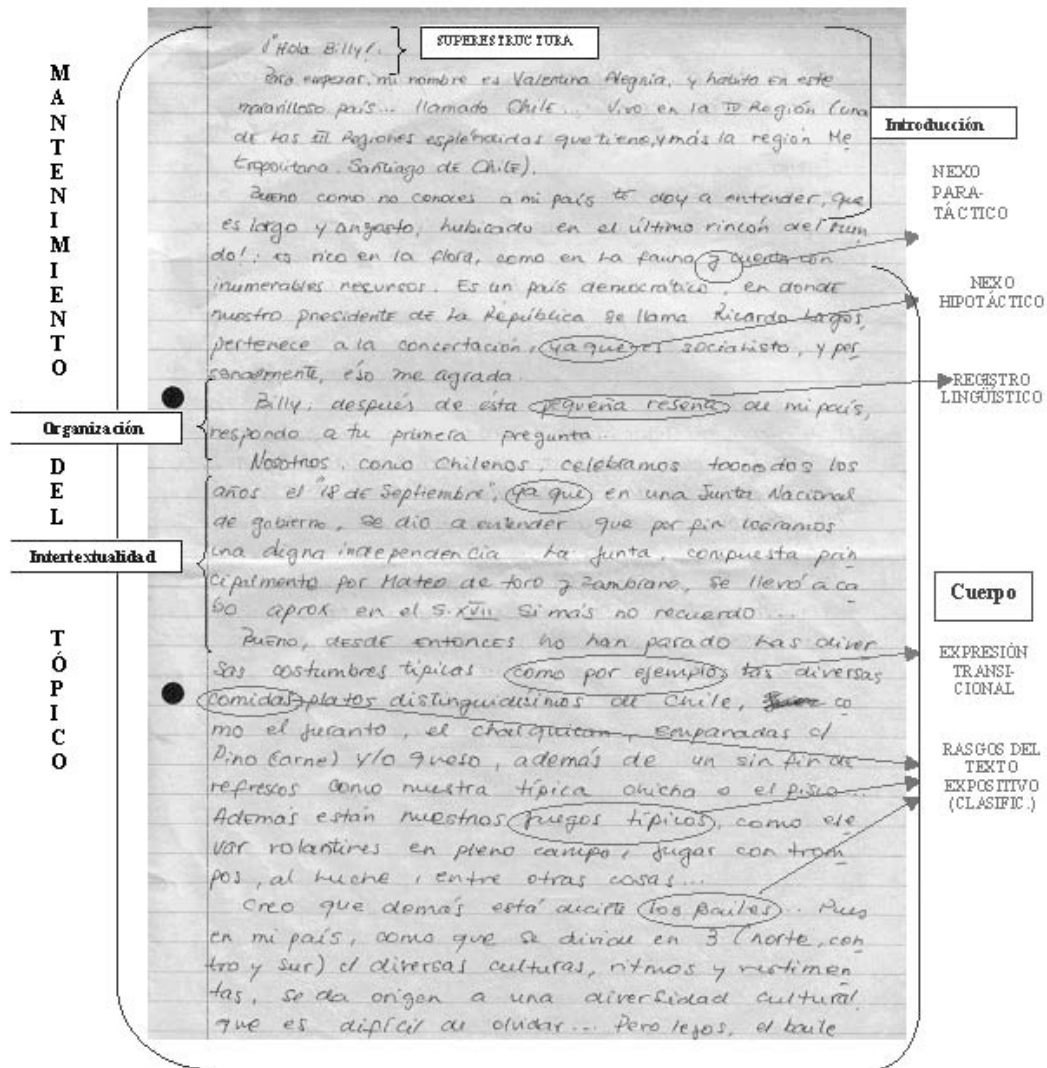 ¡Hola Billy!.
SUPERESTRUCTURA
Para empezar, mi nombre es Valentina Alegría, y habito en este
maravilloso país... llamado Chile... Vivo en la IV Región (una
de las III Regiones espléndidas que tiene, y más la región Me
tropolitana. Santiago de Chile).
Bueno como no conoces a mi país te doy a entender, que
es largo y angosto, hubicado en el último rincón del mun
do!; es rico en la flora, como en la fauna y cuenta con
inumerables recursos. Es un país democrático, en donde
nuestro presidente de la República se llama Ricardo Lagos,
pertenece a la concertación, ya que es socialista, y per
sonalmente, éso me agrada.
Billy, después de ésta pequeña reseña de mi país,
respondo a tu primera pregunta...
Nosotros, como Chilenos, celebramos toooodos los
años el "18 de Septiembre", ya que en una Junta Nacional
de gobierno, se dio a entender que por fin logramos
una digna independencia. La Junta, compuesta prin
cipalmente por Mateo de toro y Zambrano, se llevó a ca
bo aprox en el S. XVII si más no recuerdo...
Bueno, desde entonces no han parado las diver
sas costumbres típicas como por ejemplo, las diversas
comidas, platos distinguidisimos de Chile, co
mo el juranto, el charquican, empanadas c/
Pino (carne) y/o queso, además de un sin fin de
refrescos como nuestra típica chicha o el pisco...
Además están nuestros juegos típicos, como ele
var volantines en pleno campo, jugar con trom
pos, al luche, entre otras cosas...
Creo que demás está decirte los bailes... Pues
en mi país, como que se divide en 3 (norte, cen
tro y sur) c/ diversas culturas, ritmos y vestimen
tas, se da origen a una diversidad cultural
que es difícil de olvidar... Pero lejos, el baile
MANTENIMIENTO
DEL
TÓPICO
Organización
Intertextualidad
Introducción
NEXO
PARA-
TÁCTICO
NEXO
HIPOTÁCTICO
REGISTRO
LINGÜÍSTICO
Cuerpo
EXPRESIÓN
TRANSI-
CIONAL
RASGOS DEL
TEXTO
EXPOSITIVO
(CLASIFIC.)